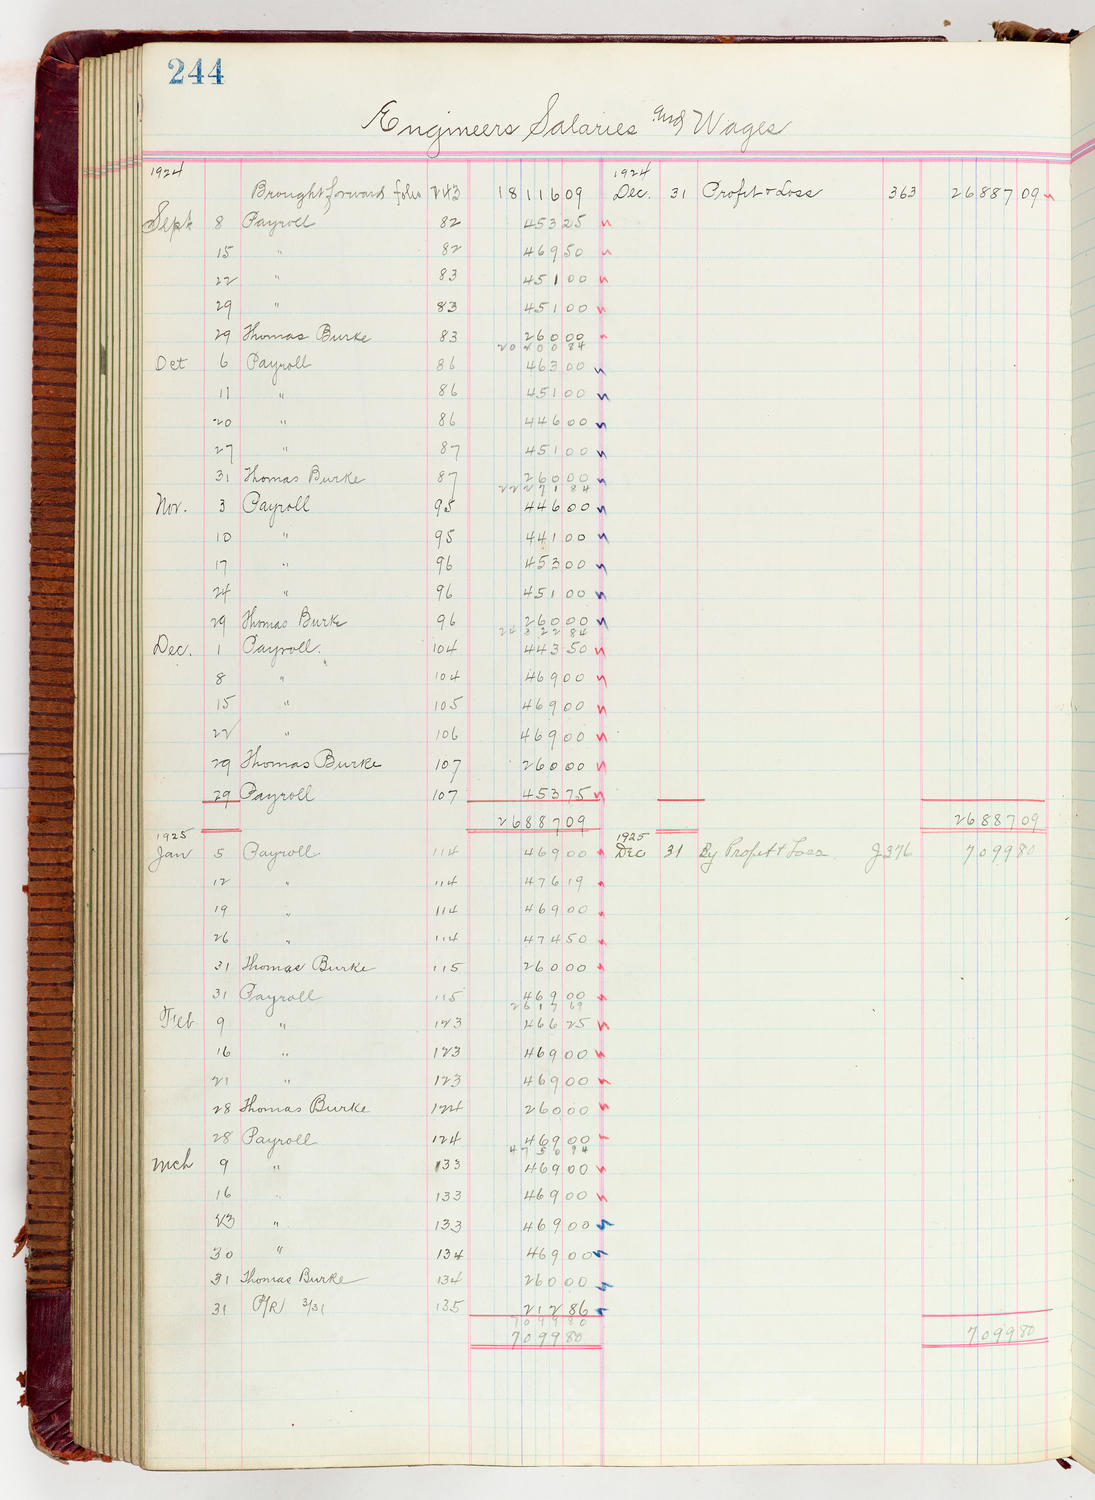 244
Engineers Salaries and Wages
1924 1924
Brought forward folio 243 18116 09 Dec. 31 Profit & Loss 363 26887 09
Sept 8 Payroll 82 453 25
15 " 82 469 50
22 " 83 451 00
29 " 83 451 00
29 Thomas Burke 83 260 00
20200 84
Oct 6 Payroll 86 463 00
11 " 86 451 00
20 " 86 446 00
27 " 87 451 00
31 Thomas Burke 87 260 00
22271 84
Nov. 3 Payroll 95 446 00
10 " 95 441 00
17 " 96 453 00
24 " 96 451 00
29 Thomas Burke 96 260 00
24322 84
Dec. 1 Payroll. 104 443 50
8 " 104 469 00
15 " 105 469 00
22 " 106 469 00
29 Thomas Burke 107 260 00
29 Payroll 107 453 75
26887 09 26887 09
1925 1925
Jan 5 Payroll 114 469 00 Dec 31 By Profit & Loss J376 7099 80
12 " 114 476 19
19 " 114 469 00
26 " 114 474 50
31 Thomas Burke 115 260 00
31 Payroll 115 469 00
2617 69
Feb 9 " 123 466 25
16 " 123 469 00
21 " 123 469 00
28 Thomas Burke 124 260 00
28 Payroll 124 469 00
4750 94
Mch 9 " 133 469 00
16 " 133 469 00
23 " 133 469 00
30 " 134 469 00
31 Thomas Burke 134 260 00
31 P/R 3/31 135 212 86
7099 80
7099 80 7099 80